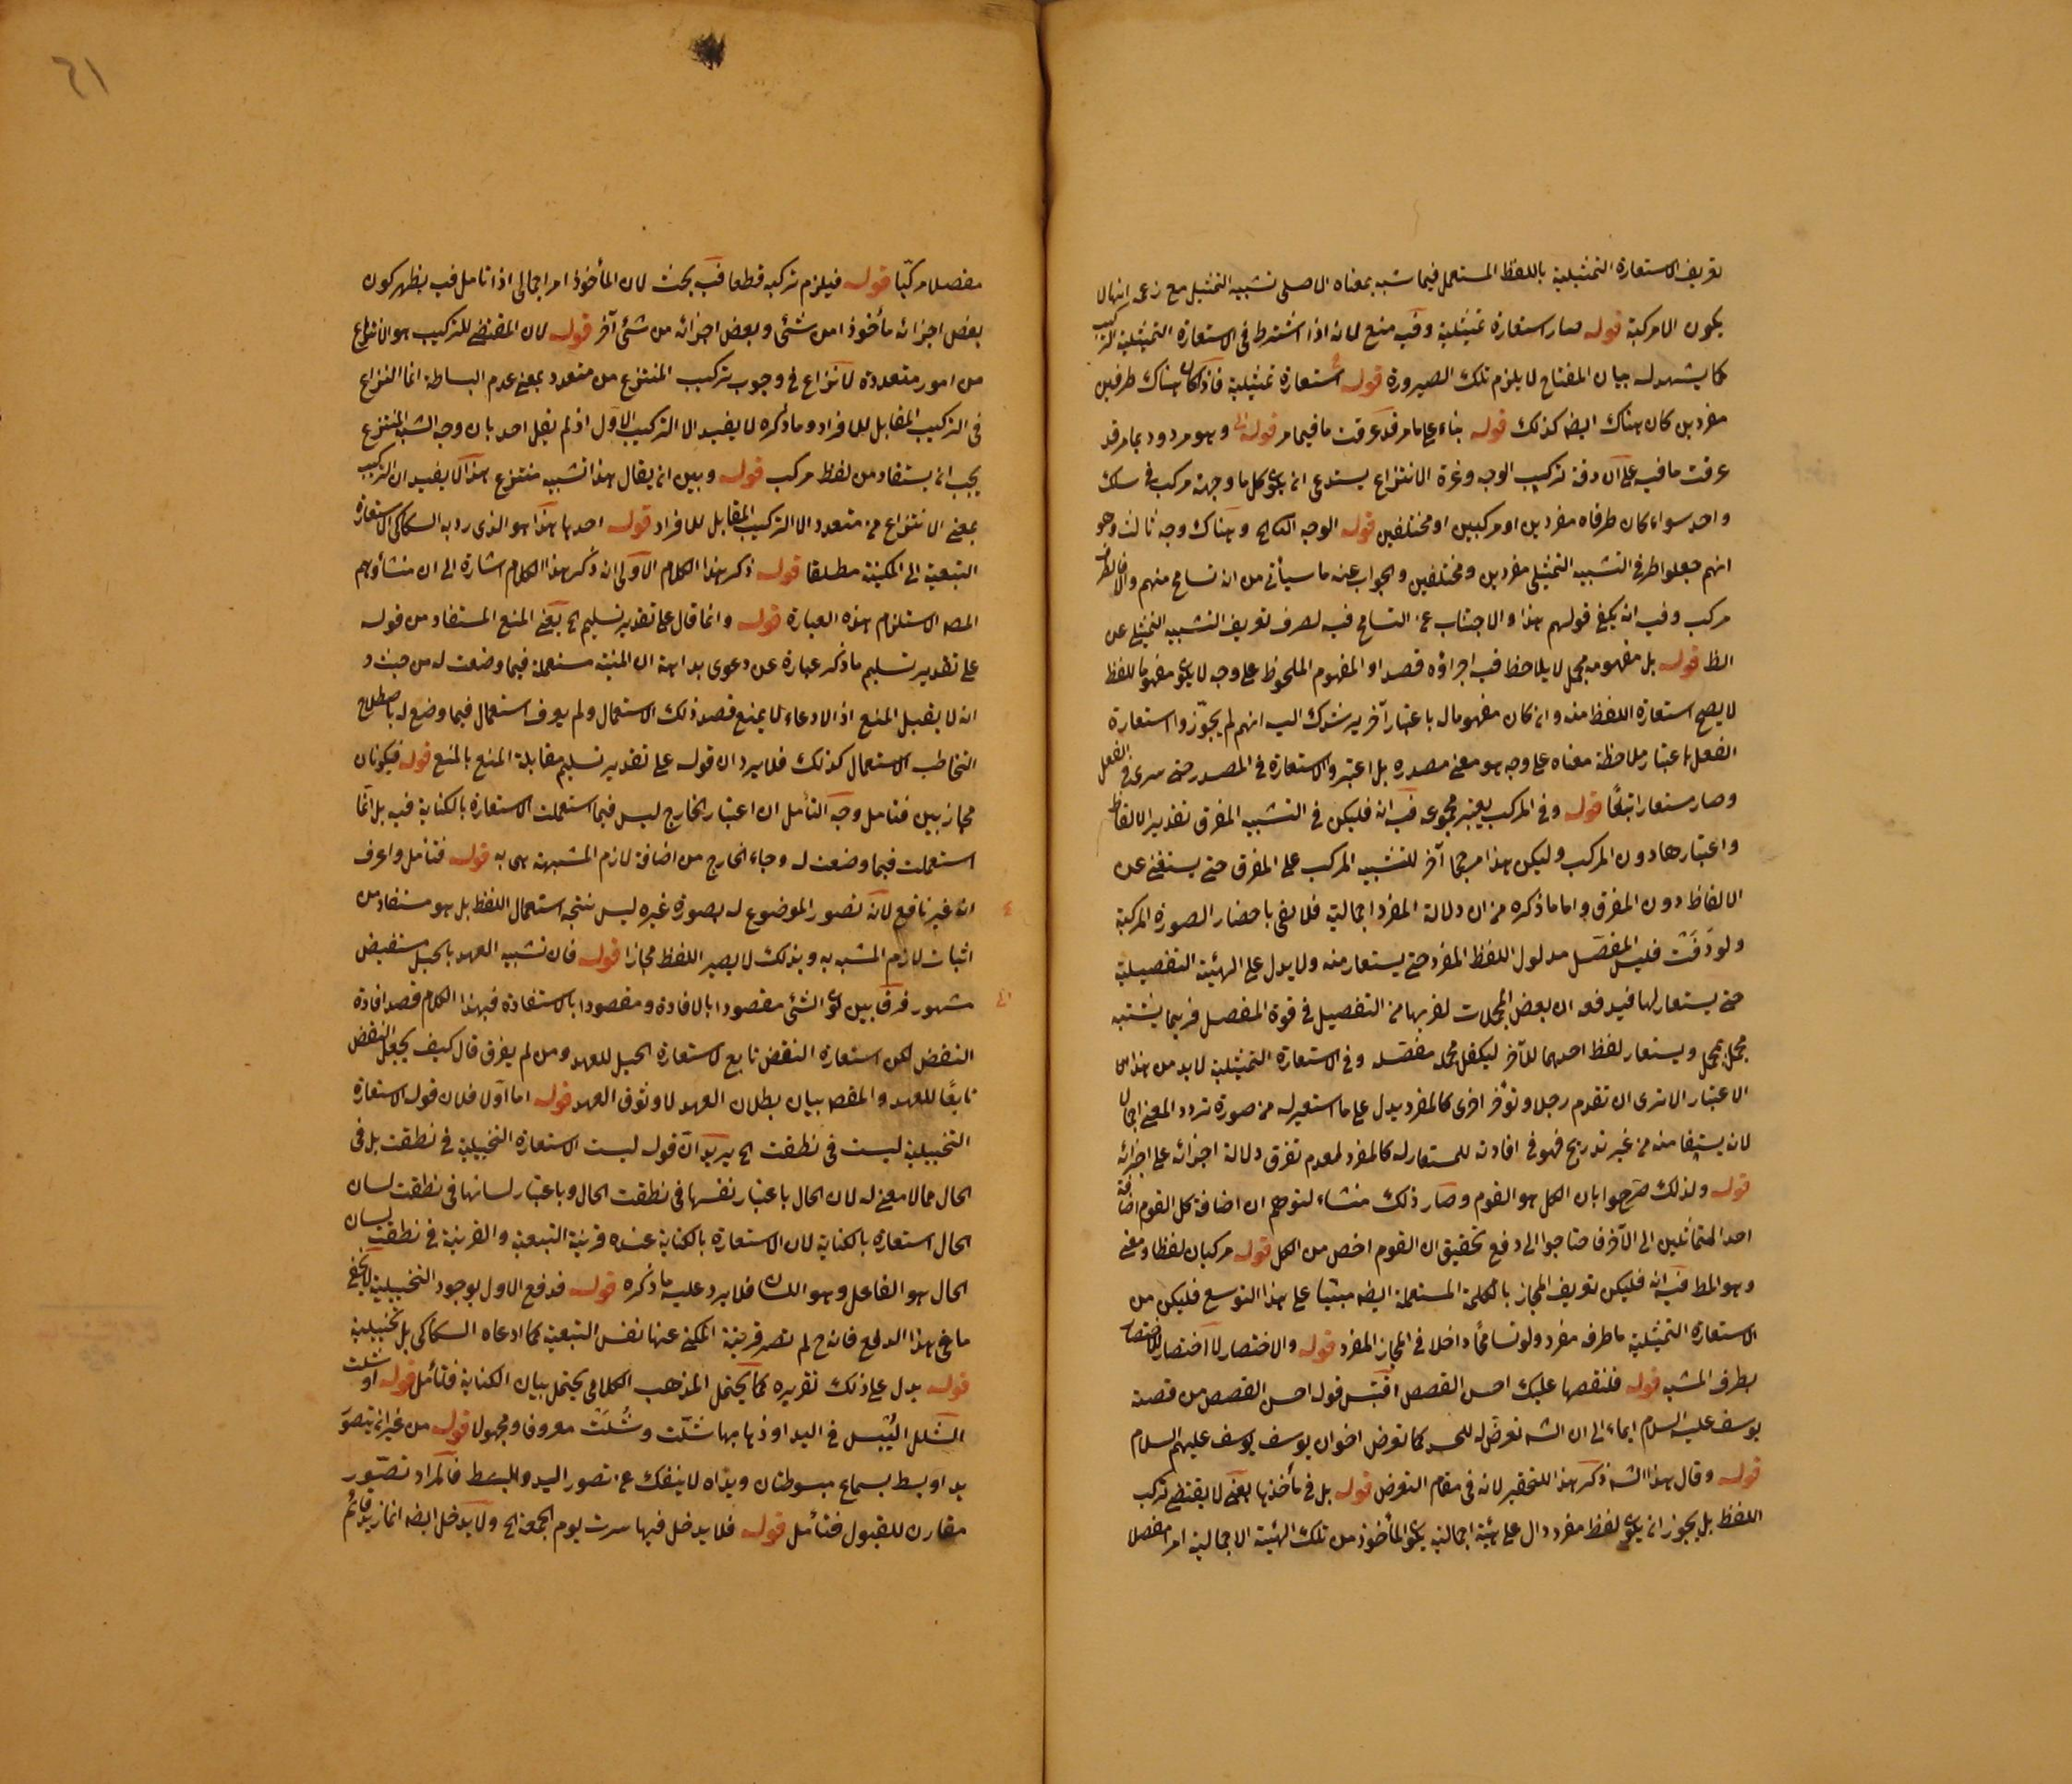 تعريف الاستعارة التمثيلية باللفظ المستعمل فيما شبه بمعناه الاصلى تشبيه التمثيل مع زعمه انها لا
يكون الا مركبة قوله صار استعارة تمثيلية وفيه منع لانه اذا اشترط فى الاستعارة التمثيلية التركيب
كما يشهد له بيان المفتاح لا يلزم تلك الصيرورة قوله استعارة تمثيلية فاذا كان هناك طرفين
مفردين كان هناك ايضه كذلك قوله بناء على ما مر قد عرفت ما فيما مر قوله وهو مردود بما مر قد
عرفت ما فيه على ان دقة تركيب الوجه وغرة الانتزاع يستدعى ان يكون كل ما وجهه مركب فى سلك
واحد سواء كان طرفاه مفردين او مركبين او مختلفين قوله الوجه الثالث وهناك وجه ثالث وهو
انهم جعلوا طرفى التشبيه التمثيلى مفردين ومختلفين والجواب عنه ما سيأتى من انه تسامح منهم
مركب وفيه انه يكفى قولهم هذا والاجتناب عن التسامح فيه لصرف تعريف التشبيه التمثيلى عن
الظ قوله بل مفهومه مجمل لا يلاحظ فيه اجزاؤه قصدا والمفهوم الملحوظ على وجه لا يكون مفهوما للفظ
لا يصح استعارة اللفظ منه وان كان مفهوما له باعتبار آخر يرشدك اليه انهم لم يجوّزوا استعارة
الفعل باعتبار ملاحظة معناه على وجه هو معنى مصدره بل اعتبروا الاستعارة فى المصدر حتى سرى فى الفعل
وصار مستعارا تبعًا قوله وفى المركب يعتبر مجموعه فيه انه فليكن فى التشبيه المفرق تقدير الالفاظ
واعتبارها دون المركب وليكن هذا مرجحا آخر للتشبيه المركب على المفرق حتى يستغنى عن
الالفاظ دون المفرق واما ما ذكره من ان دلالة المفرد اجمالية فلا يفى باحضار الصورة المركبة
ولو دققت فليس المفصل مدلول اللفظ المفرد حتى يستعار منه ولا يدل على الهيئة التفصيلية
حتى يستعار لها فيدفعه ان بعض المجملات لقربها من التفصيل فى قوة المفصل فربما يشتبه
مجمل بمجمل ويستعار لفظ احدهما للآخر ليكفل محمد مفصله وفى الاستعارة التمثيلية لابد من هذا
الاعتبار الا ترى ان تقدم رجلا وتؤخر اخرى كالمفرد يدل على ما استعير له من صورة تردد المعنى
لان يستفا منه من غير تدريج فهو فى افادته للمستعار له كالمفرد لعدم تفرق دلالة اجزائه على اجزائه
قوله ولذلك صرحوا بان الكل هو القوم وصار ذلك منشاء لتوهم ان اضافة كل القوم اضافة
احد المتماثلين الى الآخر فاحتاجوا الى دفع تحقيق ان القوم اخص من الكل قوله مركبان لفظا ومعنى
وهو المط فيه انه فليكن تعريف المجاز بالكلمة المستعملة ايضه مبنيا على هذا التوسع فليكن من
الاستعارة التمثيلية ما طرفه مفرد ولو تسامحًا داخلا فى المجاز المفرد قوله والاختصار لا اختصار للاختصار
بطرف المشبه قوله فلنقصها عليك احسن القصص اقتبس قوله احسن القصص من قصة
يوسف عليه السلام ايماء الى ان الشه تعرض له للحسد كما تعرض اخوان يوسف ليوسف عليهم السلام
قوله وقال هذا الشه ذكر هذا للتحقير لانه فى مقام التعرض قوله بل فى مأخذها يعنى لا يقتضى تركب
اللفظ بل يجوز ان يكون لفظا مفردا دال على هيئة اجمالية يكون المأخوذ من تلك الهيئة الاجمالية امرا مفصلا
٦١
مفصلا مركبّا قوله فيلزم تركبه قطعا فيه بحث لان المأخوذ امر اجمالى اذا تامل فيه يظهر كون
بعض اجزائه مأخوذا من شئى وبعض اجزائه من شئى آخر قوله لان المقتضى للتركيب هو الانتزاع
من امور متعددة لا نزاع فى وجوب تركيب المنتزع من متعدد بمعنى عدم البساطة انما النزاع
فى التركيب المقابل للافراد وما ذكره لا يفيد الا التركيب الاول اذ لم يقل احد بان وجه الشبه المنتزع
يجب ان يستفاد من لفظ مركب قوله وبين ان يقال هذا تشبيه منتزع هذا لا يفيد ان التركيب
بمعنى الانتزاع من متعدد الا التركيب المقابل للافراد قوله احدها هذا هو الذى رد به السكاكى الاستعارة
التبعية الى المكنية مطلقا قوله ذكر هذا الكلام الاولى ان ذكر هذا الكلام اشارة الى ان منشأ وهم
المصه الاستلزام هذه العبارة قوله وانما قال على تقدير تسليم الخ يعنى المنع المستفاد من قوله
على تقدير تسليم ما ذكر عبارة عن دعوى بداهة ان المنية مستعملة فيما وضعت له من حيث و
انه لا يقبل المنع اذ الادعاء لا يمنع قصد ذلك الاستعمال ولم يعرف استعمال فيما وضع له باصطلاح
التخاطب الاستعمال كذلك فلا يرد ان قوله على تقدير تسليم مقابلة المنع بالمنع قوله فيكونان
مجازيين فتامل وجه التأمل ان اعتبار الخارج ليس فيما استعملت الاستعارة بالكناية فيه بل انّما
استعملت فيما وضعت له وجاء الخارج من اضافة لازم المشبهة به قوله فتأمل واعرف
انه غير نافع لانه تصور الموضوع له بصورة غيره ليس نتيجة استعمال اللفظ بل هو مستفاد من
اثبات لازم المشبه به وبذلك لا يصير اللفظ مجازا قوله فان تشبيه العهد بالحبل مستفيض
مشهور فرق بين كون الشئى مقصودا بالافادة ومقصودا بالاستفادة فبهذا الكلام قصد افادة
النقض لكن استعارة النقض تابع لاستعارة الحبل للعهد ومن لم يفرق قال كيف يجعل النقض
تابعًا للعهد والمقصه بيان بطلان العهد لا وثوق العهد قوله اما اولا فلان قوله الاستعارة
التخييلية ليست فى نطقت الخ يريد انّ قوله ليست الاستعارة التخييلية فى نطقت بل فى
الحال مما لا معنى له لان الحال باعتبار نفسها فى نطقت الحال وباعتبار لسانها فى نطقت لسان
الحال استعارة بالكناية لان الاستعارة بالكناية عنده قرينة التبعية والقرينة فى نطقت لسان
الحال هو الفاعل وهو اللسان فلا يرد عليه ما ذكره قوله فدفع الاول بوجود التخييلية لا يخفى
ما فى هذا الدفع فانه ح لم تصر قرينة المكنى عنها نفس التبعية كما ادعاه السكاكى بل تخييلية
قوله يدل على ذلك تقريره كما يحتمل المذهب الكلامى يحتمل بيان الكناية فتأمل قوله او شلت
الشلل اليبس فى اليد او ذهابها شلّت وشُلّت معروفا ومجهولا قوله من غير ان يتصور
يد او بسط بسماع مبسوطتان ويداه لا ينفك عن تصور اليد والبسط فالمراد تصوّر
مقارن للقبول فتأمل قوله فلا يدخل فيها سرت يوم الجمعة الخ ولا يدخل ايضه انما زيد قائم